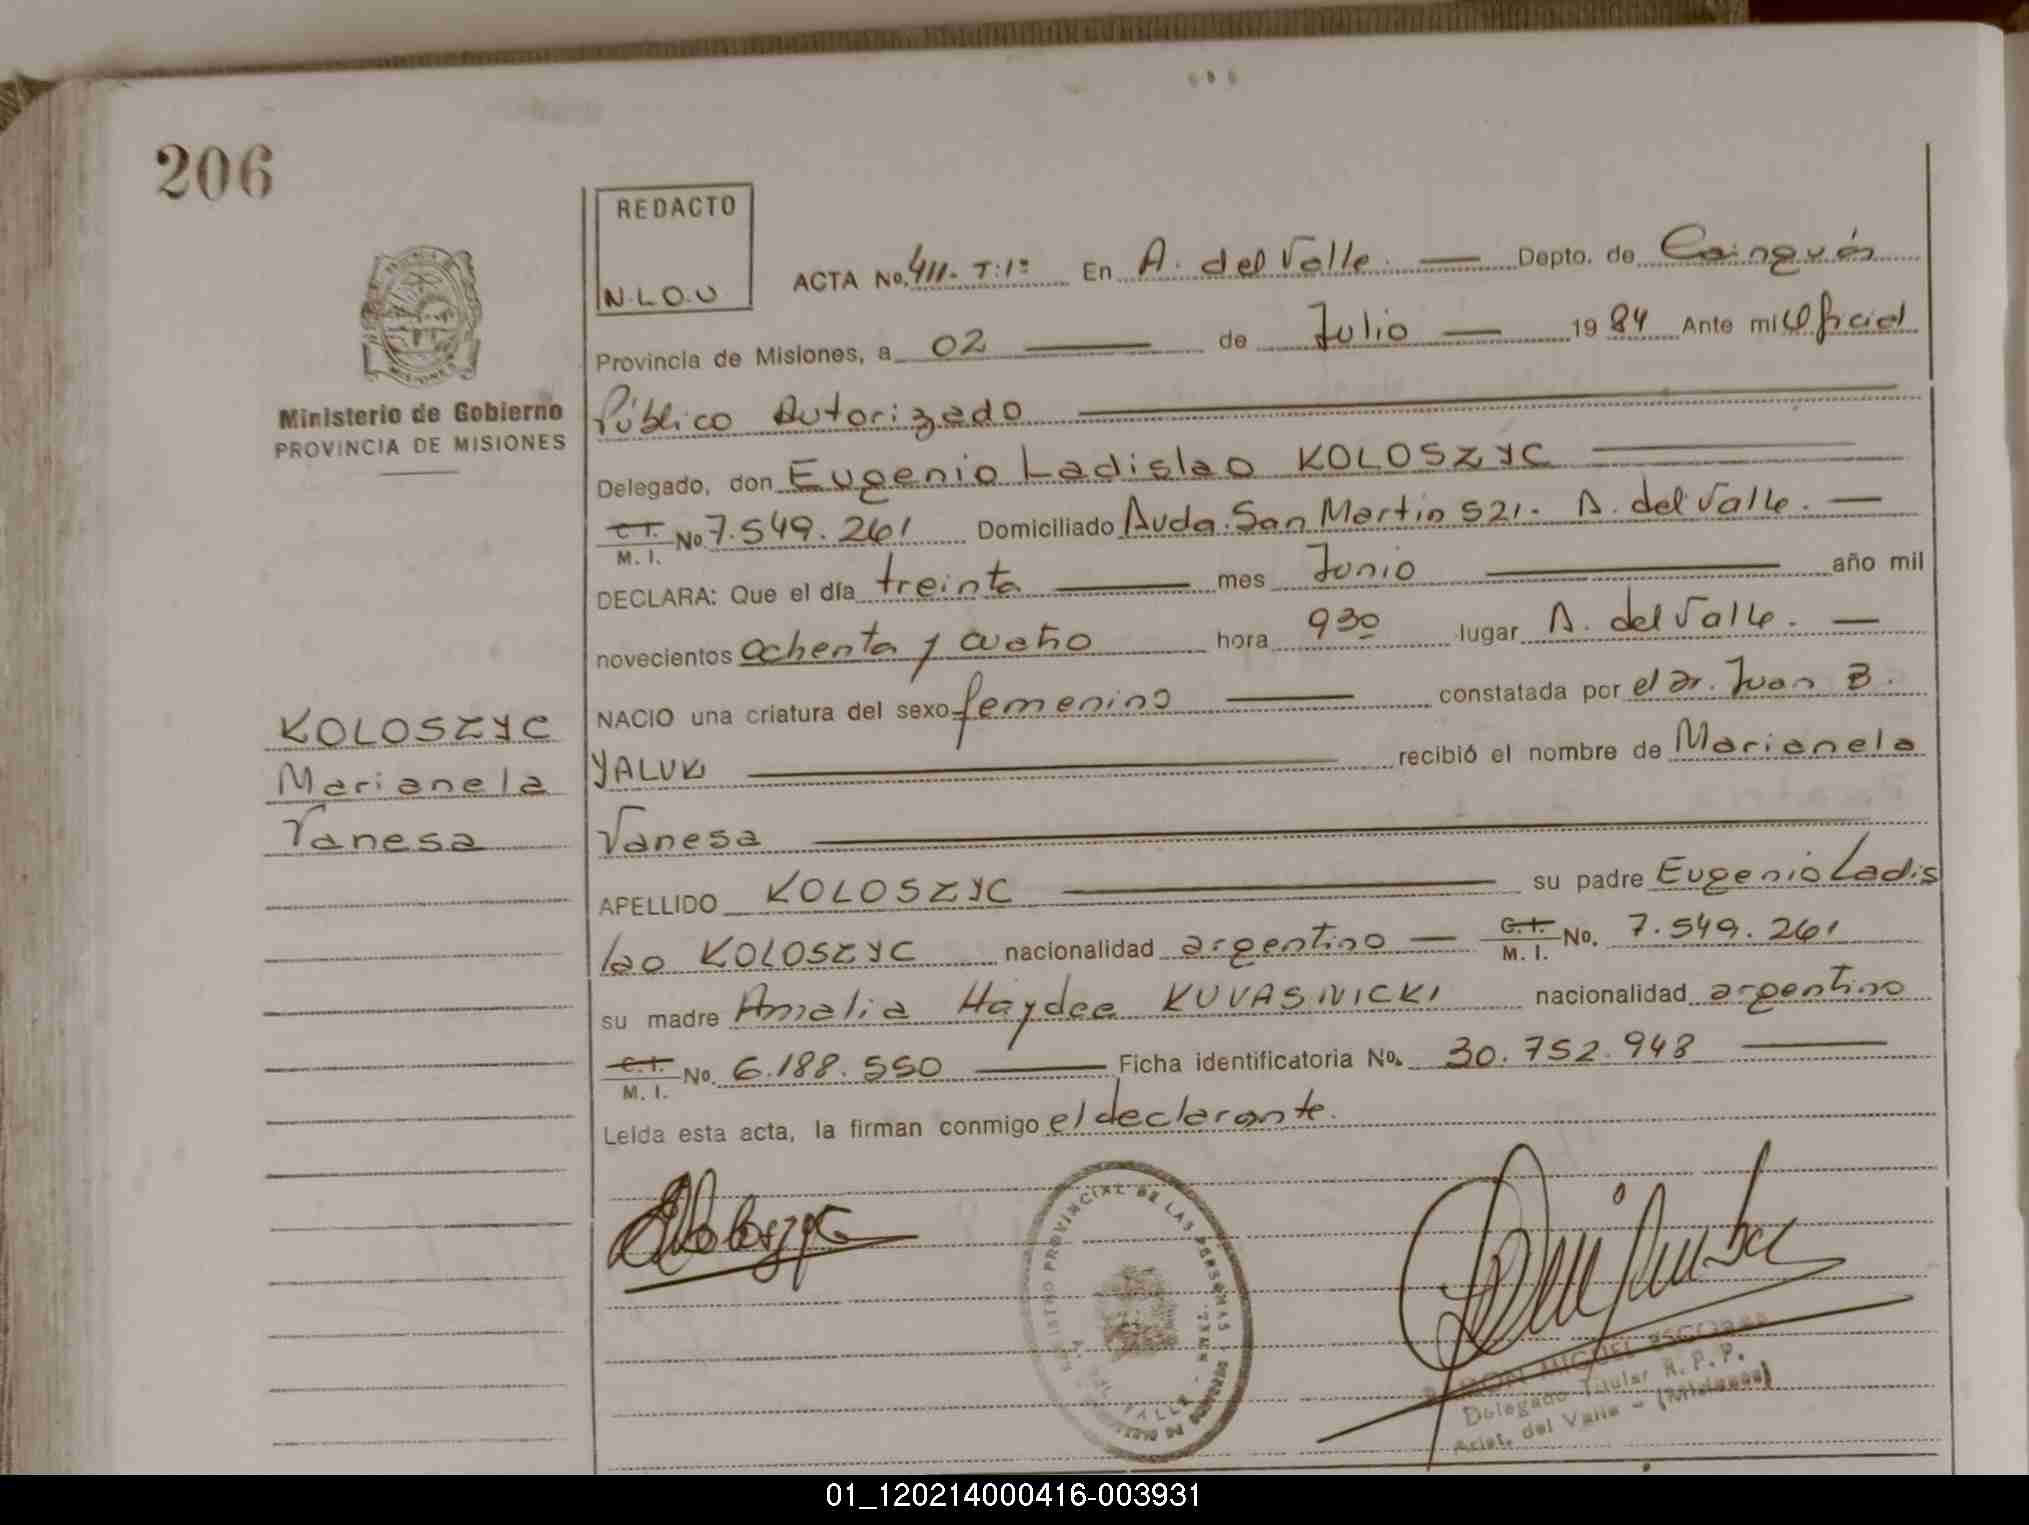 206
REDACTO
N.L.O.U
ACTA No. 411- T: 1º En A. del Valle. Depto. de Cainguás
Provincia de Misiones, a 02 de Julio 1984 Ante mi Oficial
Ministerio de Gobierno
PROVINCIA DE MISIONES
Público Autorizado
Delegado, don Eugenio Ladislao KOLOSZYC
C.I. M. I. No 7.549.261 Domiciliado Avda. San Martin 521- A. del Valle.
DECLARA: Que el día treinta mes Junio año mil
novecientos ochenta y cuatro hora 930 lugar A. del Valle.
NACIO una criatura del sexo femenino constatada por el Dr. Juan B.
YALUK recibió el nombre de Marianela
Vanesa
KOLOSZYC
Marianela
Vanesa
APELLIDO KOLOSZYC su padre Eugenio Ladis
lao KOLOSZYC nacionalidad argentino C.I. M. I. No. 7.549.261
su madre Amalia Haydee KUVASNICKI nacionalidad argentino
C.I. M. I. No. 6.188.550 Ficha identificatoria No. 30.752.948
Leída esta acta, la firman conmigo el declarante.
EKoloszyc
REGISTRO PROVINCIAL DE LAS PERSONAS
A. DEL VALLE
RAMON MIGUEL ESCOBAR
Delegado Titular R. P. P.
Arist. del Valle - (Misiones)
01_120214000416-003931